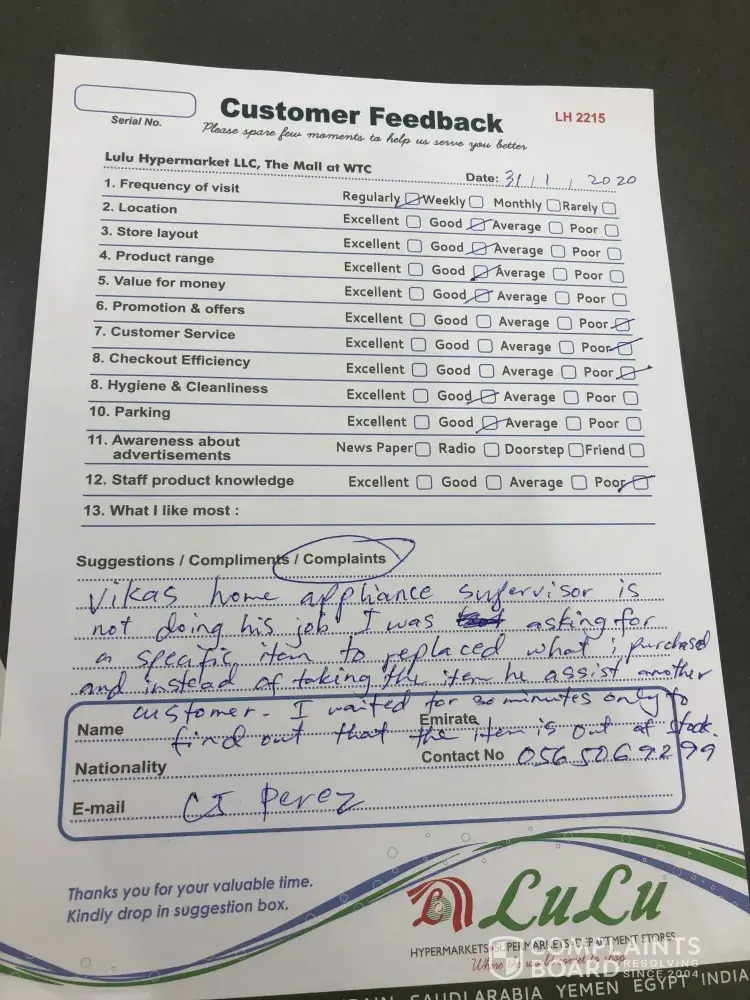 Serial No.
Customer Feedback
LH 2215
Please spare few moments to help us serve you better
Lulu Hypermarket LLC, The Mall at WTC
Date: 31/ 1 / 2020
1. Frequency of visit Regularly Weekly Monthly Rarely
2. Location Excellent Good Average Poor
3. Store layout Excellent Good Average Poor
4. Product range Excellent Good Average Poor
5. Value for money Excellent Good Average Poor
6. Promotion & offers Excellent Good Average Poor
7. Customer Service Excellent Good Average Poor
8. Checkout Efficiency Excellent Good Average Poor
8. Hygiene & Cleanliness Excellent Good Average Poor
10. Parking Excellent Good Average Poor
11. Awareness about advertisements News Paper Radio Doorstep Friend
12. Staff product knowledge Excellent Good Average Poor
13. What I like most :
Suggestions / Compliments / Complaints
Vikas home appliance supervisor is
not doing his job I was asking for
a specific item to replaced what i purchased
and instead of taking the item he assist another
customer. I waited for 30 minutes only to
find out that the item is out of stock.
Name
Emirate
Nationality
Contact No 0565069299
E-mail CJ Perez
Thanks you for your valuable time.
Kindly drop in suggestion box.
LuLu
HYPERMARKETS SUPERMARKETS DEPARTMENT STORES
Where the world comes to shop
COMPLAINTS
BOARD RESOLVING
SINCE 2004
SAUDI ARABIA YEMEN EGYPT INDIA